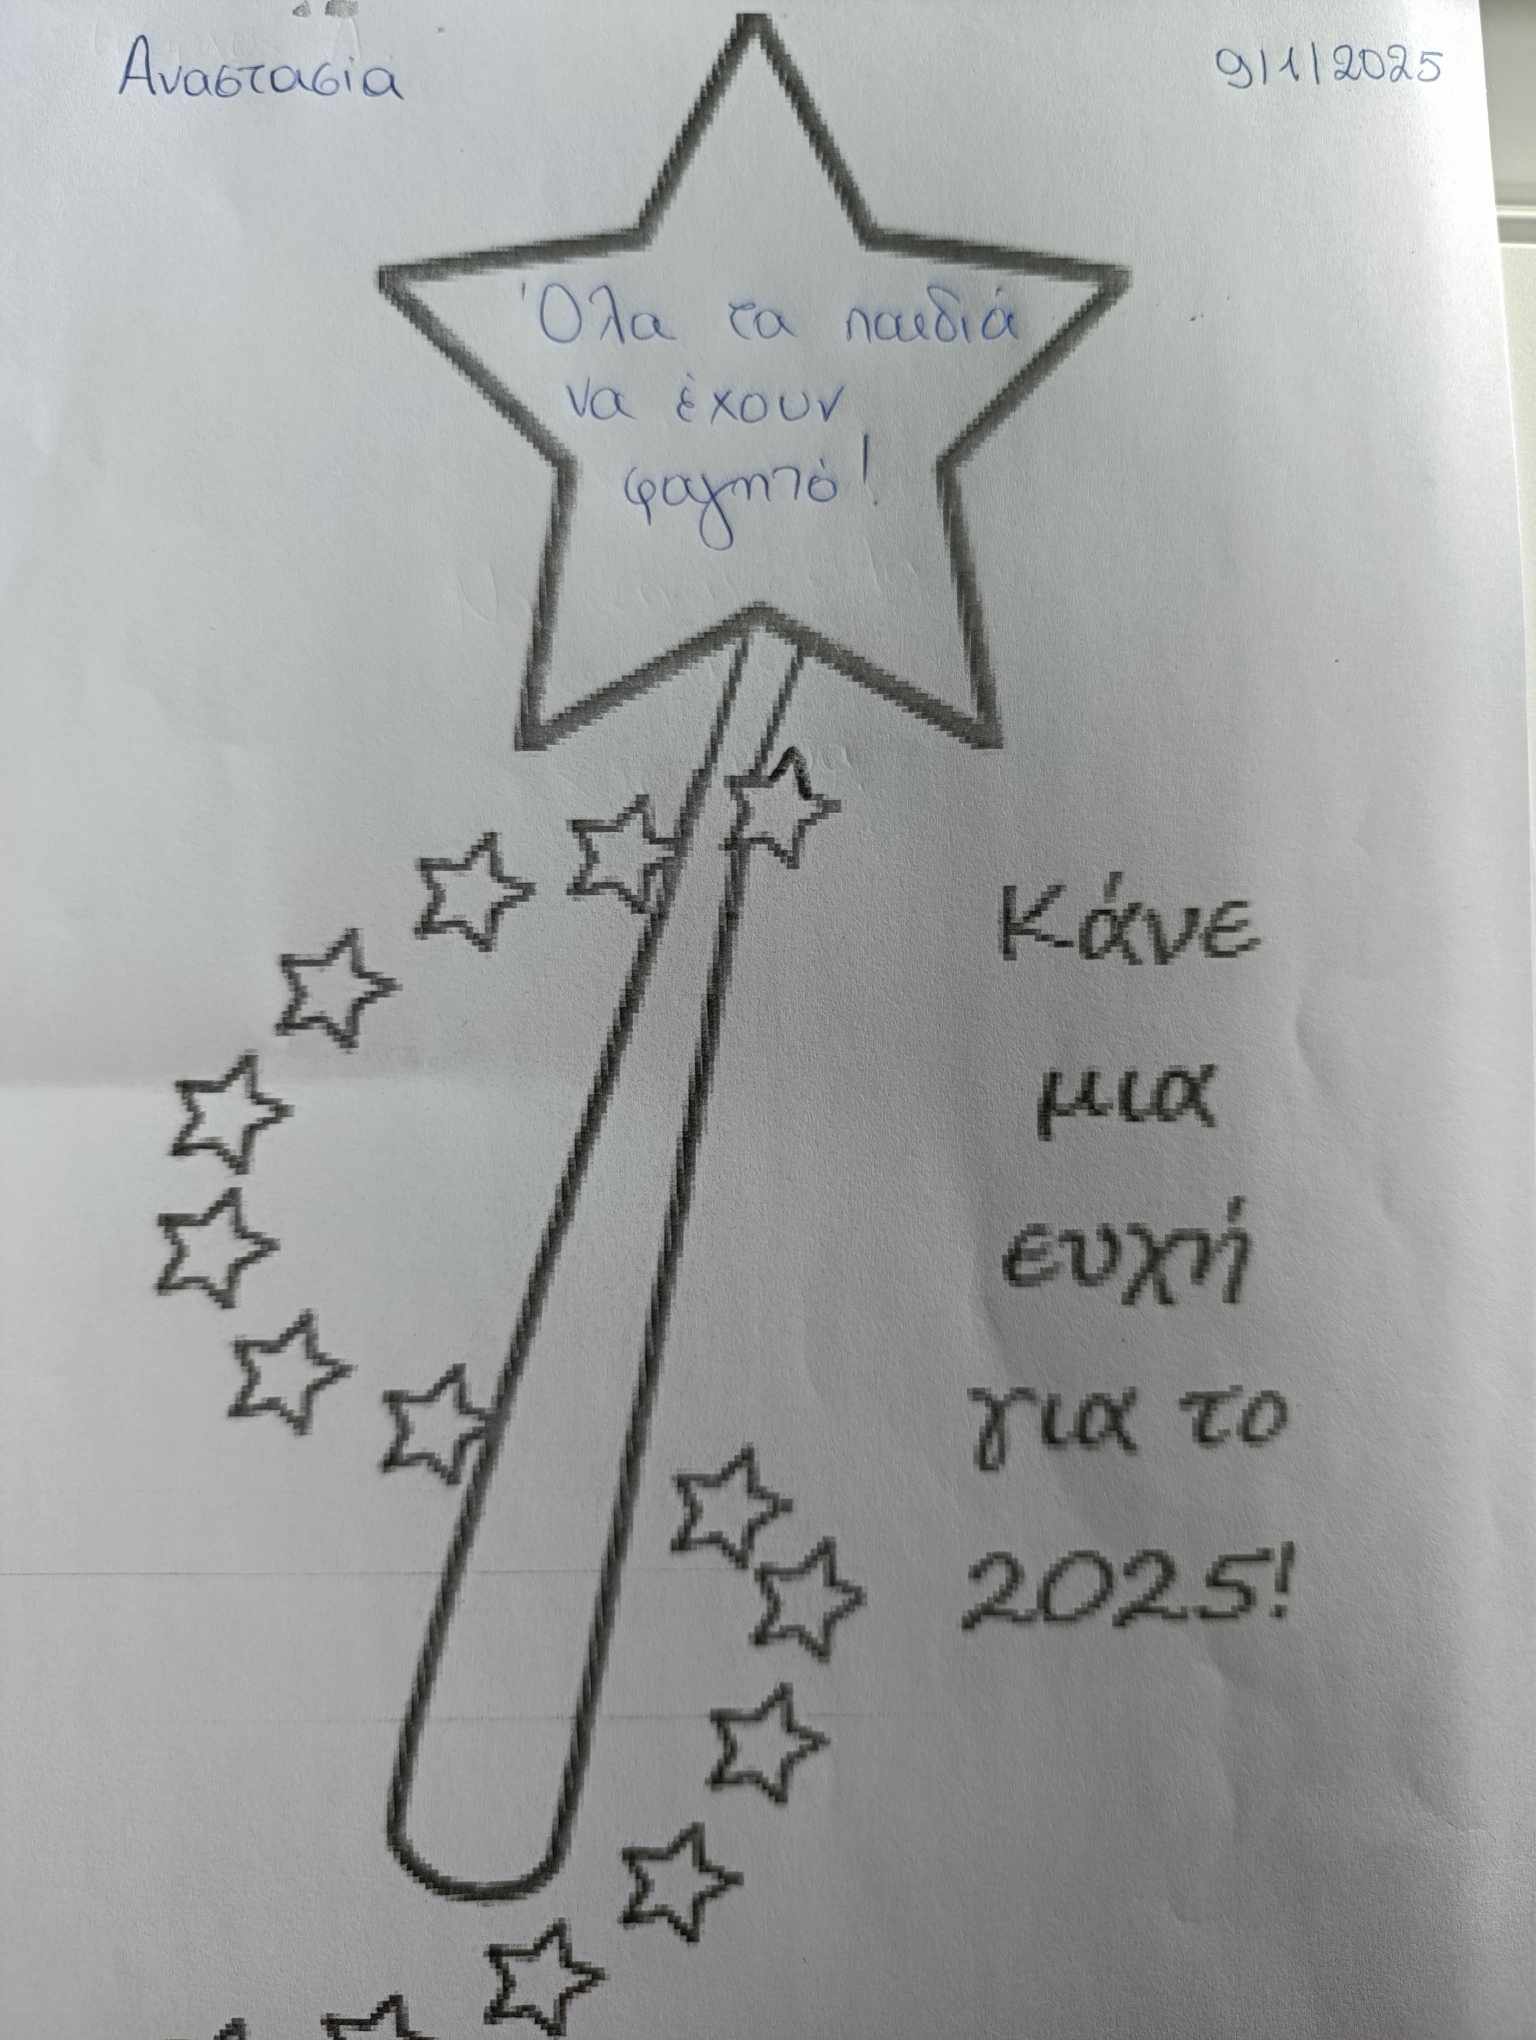 Αναστασία
9/1/2025
Όλα τα παιδιά
να έχουν
φαγητό!
Κάνε
μια
ευχή
για το
2025!